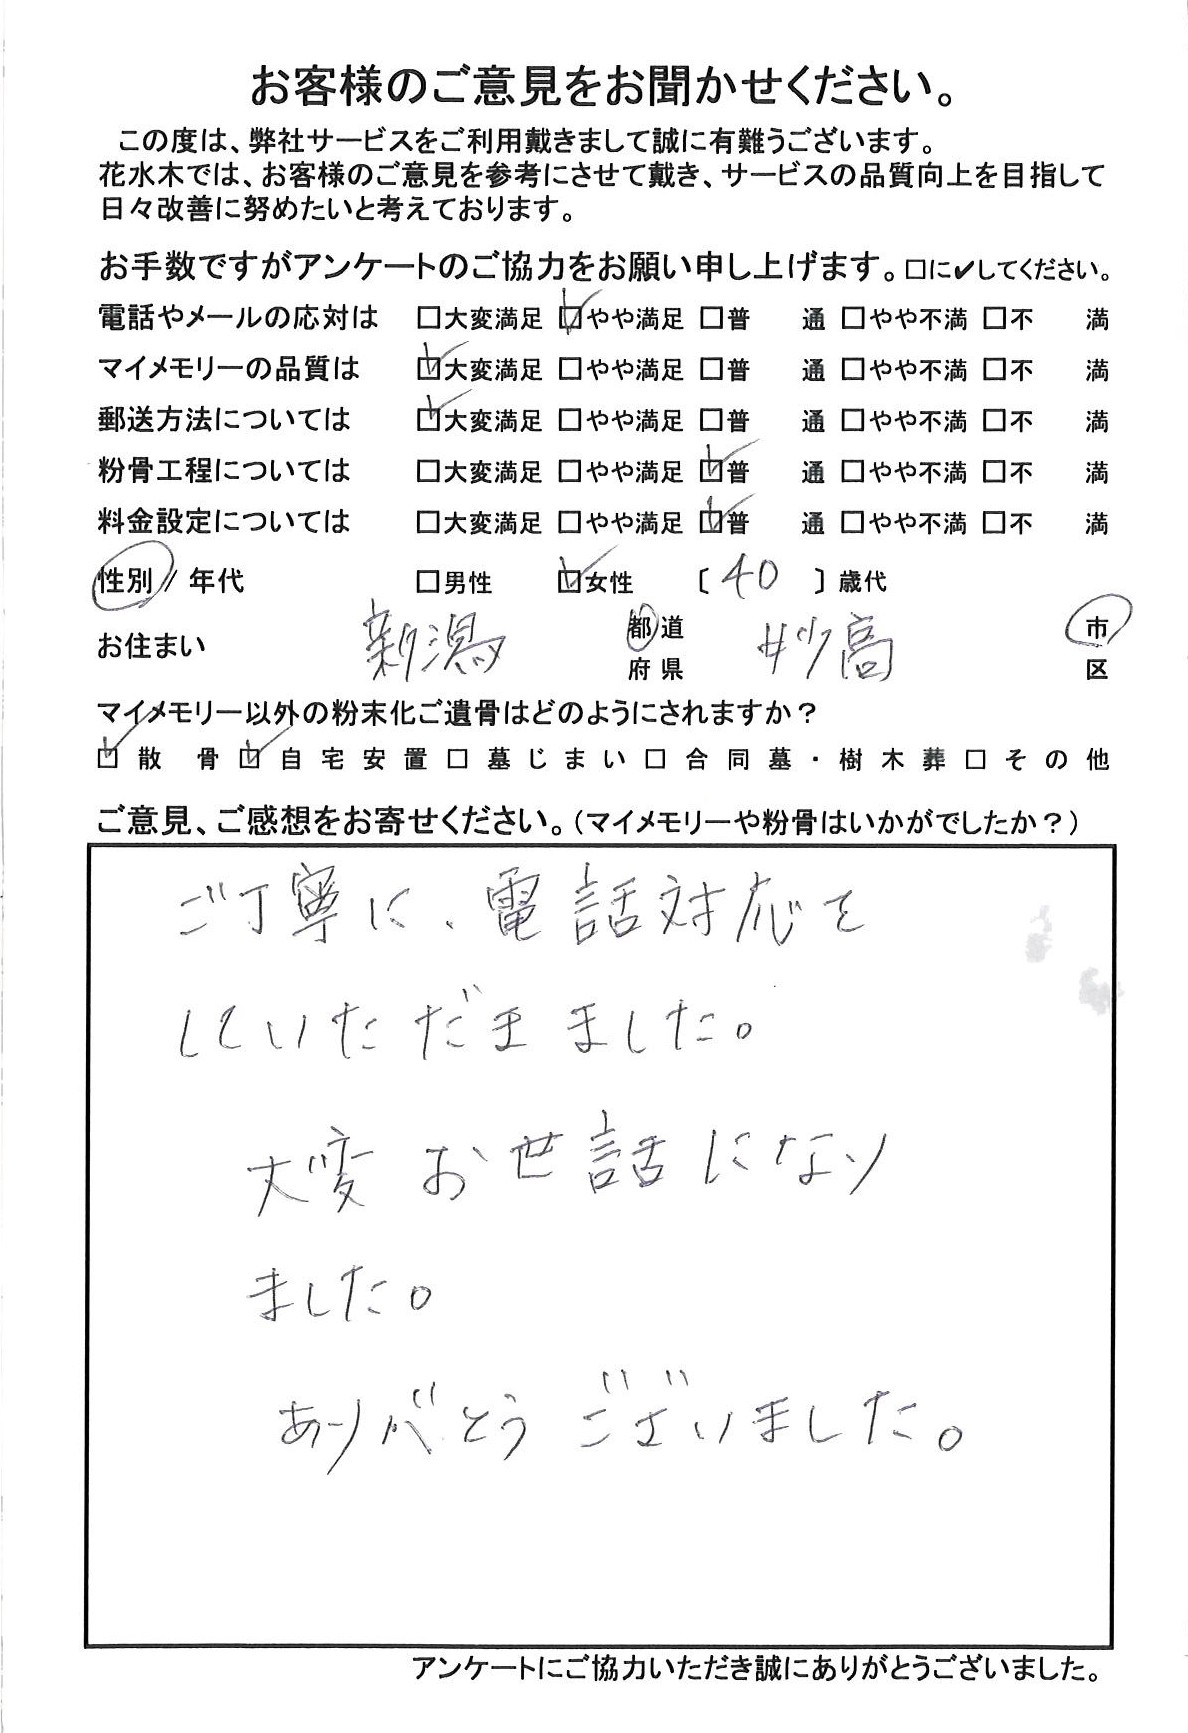 お客様のご意見をお聞かせください。
この度は、弊社サービスをご利用戴きまして誠に有難うございます。
花水木では、お客様のご意見を参考にさせて戴き、サービスの品質向上を目指して
日々改善に努めたいと考えております。
お手数ですがアンケートのご協力をお願い申し上げます。□に✓してください。
電話やメールの応対は □大変満足 ☑やや満足 □普 通 □やや不満 □不 満
マイメモリーの品質は ☑大変満足 □やや満足 □普 通 □やや不満 □不 満
郵送方法については ☑大変満足 □やや満足 □普 通 □やや不満 □不 満
粉骨工程については □大変満足 □やや満足 ☑普 通 □やや不満 □不 満
料金設定については □大変満足 □やや満足 ☑普 通 □やや不満 □不 満
性別 / 年代 □男性 ☑女性 〔 40 〕歳代
お住まい 新潟 都道府県 妙高 市区
マイメモリー以外の粉末化ご遺骨はどのようにされますか？
☑散 骨 ☑自宅安置 □墓じまい □合同墓・樹木葬 □その他
ご意見、ご感想をお寄せください。（マイメモリーや粉骨はいかがでしたか？）
ご丁寧に、電話対応を
していただきました。
大変お世話になり
ました。
ありがとうございました。
アンケートにご協力いただき誠にありがとうございました。